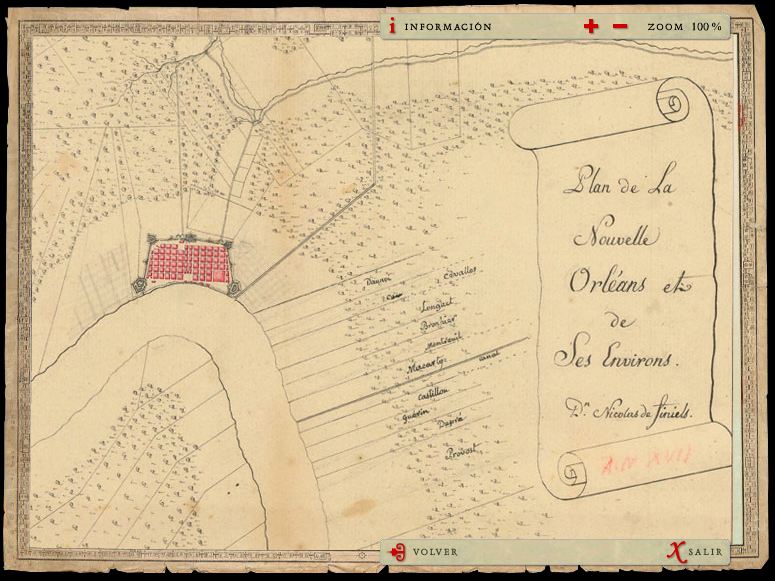 INFORMACIÓN
ZOOM 100%
Plan de La
Nouvelle
Orléans et
de
Ses Environs.
Dn. Nicolas de finiels.
Cevallos
Longuet
Montreuil
Macarty
canal
Castillon
Guérin
Dupré
Provost
VOLVER
SALIR